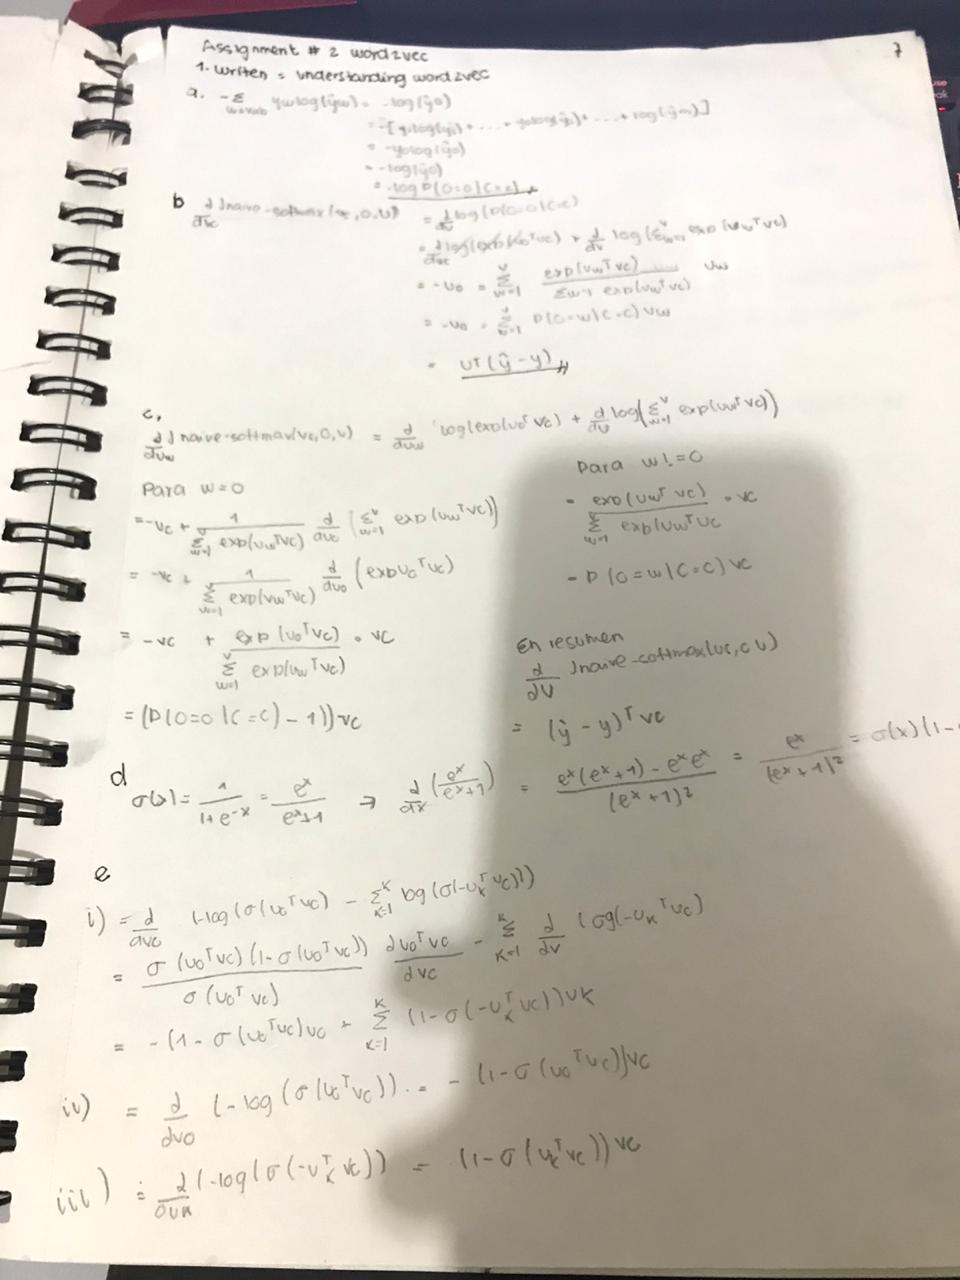 7
Assignment # 2 word2vec
1. Writen = understanding word2vec
a. -Σ_{w∈vocab} yw log(ŷw) = -log(ŷo)
= -[y1log(ŷ1) + ... + yolog(ŷo) + ... + log(ŷm)]
= -yolog(ŷo)
= -log(ŷo)
= -log P(O=o|C=c)
b d/dvc Jnaive-softmax(vc,o,U) = d/dv log(P(O=o|C=c)
= d/dvc log(exp(uoᵀvc) + d/dv log(Σ_{w=1}^{V} exp(uwᵀvc)
= -uo = Σ_{w=1}^{V} exp(uwᵀvc) / Σw=1 exp(uwᵀvc) uw
= -uo = Σ_{w=1}^{V} P(O=w|C=c) uw
= Uᵀ(ŷ-y)
c,
d/duw J naive-softmax(vc,o,u) = d/duw log(exp(uoᵀvc) + d/du log(Σ_{w=1}^{V} exp(uwᵀvc))
Para w=0
= -vc + 1 / Σ_{w=1}^{V} exp(uwᵀvc) d/duo (Σ_{w=1}^{V} exp(uwᵀvc))
= -vc + 1 / Σ_{w=1}^{V} exp(uwᵀvc) d/duo (exp uoᵀvc)
= -vc + exp(uoᵀvc) / Σ_{w=1}^{V} exp(uwᵀvc) • vc
= (P(O=o|C=c)-1))vc
Para w!=0
= exp(uwᵀvc) / Σ_{w=1}^{V} exp(uwᵀvc • vc
= P(O=w|C=c) vc
En resumen
d/dU Jnaive-softmax(vc,o U)
= (ŷ-y)ᵀvc
d
σ(x) = 1/(1+e^-x) = e^x/(e^x+1) → d/dx (e^x/(e^x+1)) = (e^x(e^x+1) - e^x e^x)/(e^x+1)² = e^x/(e^x+1)² = σ(x)(1-
e
i) = d/dvc (-log(σ(uoᵀvc) - Σ_{k=1}^{K} log(σ(-ukᵀvc)))
= σ(uoᵀvc)(1-σ(uoᵀvc)) / σ(uoᵀvc) duoᵀvc/dvc - Σ_{k=1}^{K} d/dv log(-ukᵀvc)
= -(1-σ(uoᵀvc)uo + Σ_{k=1}^{K} (1-σ(-ukᵀvc))uk
iv) = d/duo (-log(σ(uoᵀvc)) . = -(1-σ(uoᵀvc))vc
iii) = d/duk (-log(σ(-ukᵀvc)) = (1-σ(ukᵀvc))vc